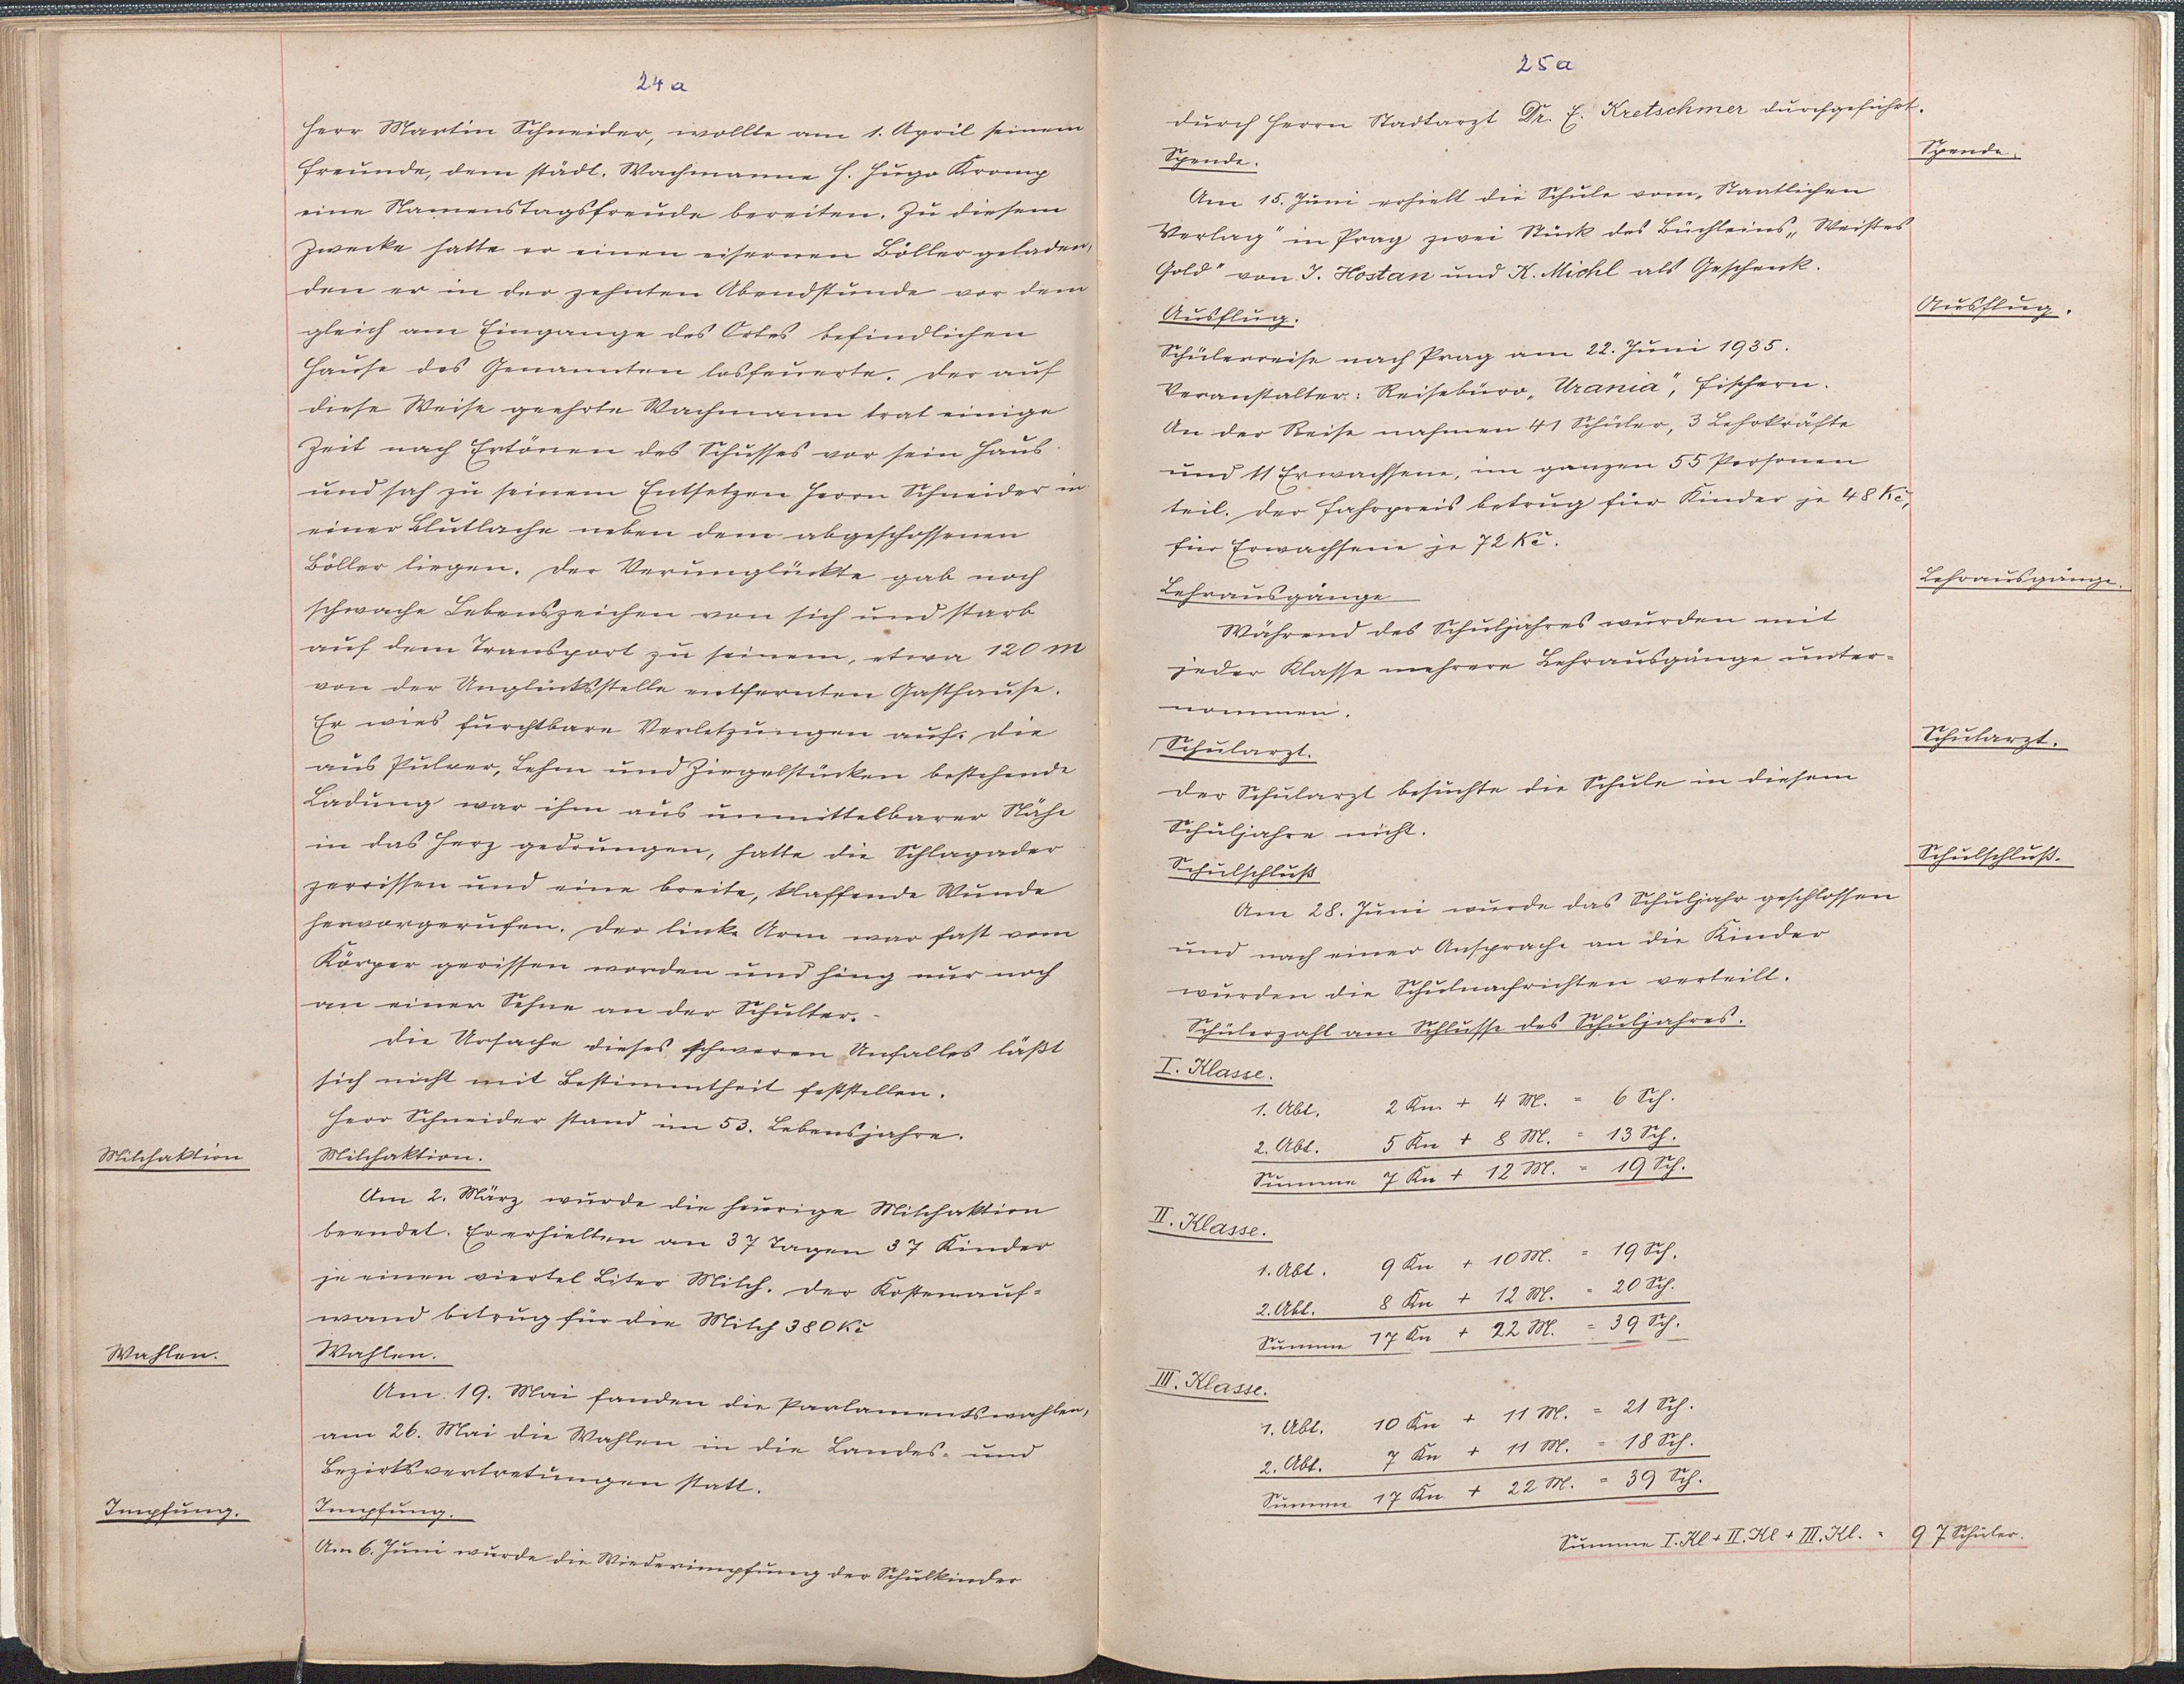 24a
Herr Martin Schneider, wollte am 1. April seinem
Freunde, dem städt. Wachmanne H. Hugo Kromp
eine Namenstagsfreude bereiten. Zu diesem
Zwecke hatte er einen eisernen Böller geladen,
den er in der zehnten Abendstunde vor dem
gleich am Eingange des Ortes befindlichen
Hause des Genannten losfeuerte. Der auf
diese Weise geehrte Wachmann trat einige
Zeit nach Ertönen des Schusses vor sein Haus
und sah zu seinem Entsetzen Herrn Schneider in
einer Blutlache neben dem abgeschossenen
Böller liegen. Der Verunglückte gab noch
schwache Lebenszeichen von sich und starb
auf dem Transport zu seinem, etwa 120 m
von der Unglücksstelle entfernten Gasthause.
Er wies furchtbare Verletzungen auf. Die
aus Pulver, Lehm und Ziegelstücken bestehende
Ladung war ihm aus unmittelbarer Nähe
in das Herz gedrungen, hatte die Schlagader
zerrissen und eine breite, klaffende Wunde
hervorgerufen. Der linke Arm war fast vom
Körper gerissen worden und hing nur noch
an einer Sehne an der Schulter.-
Die Ursache dieses schweren Unfalles läßt
sich nicht mit Bestimmtheit feststellen.
Herr Schneider stand im 53. Lebensjahre.
Milchaktion
Milchaktion.
Am 2. März wurde die heurige Milchaktion
beendet. Er erhielten an 37 Tagen 37 Kinder
je einen viertel Liter Milch. Der Kostenauf=
wand betrug für die Milch 380 Kč
Wahlen.
Wahlen.
Am 19. Mai fanden die Parlamentswahlen,
am 26. Mai die Wahlen in die Landes- und
Bezirksvertretungen statt.
Impfung.
Impfung.
Am 6. Juni wurde die Wiederimpfung der Schulkinder
25a
durch Herrn Stadtarzt Dr. E. Kretschmer durchgeführt.
Spende.
Spende.
Am 15. Juni erhielt die Schule vom „Staatlichen
Verlag" in Prag zwei Stück des Büchleins „Weißes
Gold" von J. Hostan und K. Michl als Geschenk.
Ausflug.
Ausflug.
Schülerreise nach Prag am 22. Juni 1935.
Veranstalter: Reisebüro „Urania", Fischern.
An der Reise nahmen 41 Schüler, 3 Lehrkräfte
und 11 Erwachsene, im ganzen 55 Personen
teil. Der Fahrpreis betrug für Kinder je 48 Kč,
für Erwachsene je 72 Kč.
Lehrausgänge
Lehrausgänge.
Während des Schuljahres wurden mit
jeder Klasse mehrere Lehrausgänge unter=
nommen.
Schularzt.
Schularzt.
Der Schularzt besuchte die Schule in diesem
Schuljahre nicht.
Schulschluß
Schulschluß.
Am 28. Juni wurde das Schuljahr geschlossen
und nach einer Ansprache an die Kinder
wurden die Schulnachrichten verteilt.
Schülerzahl am Schlusse des Schuljahres.
I. Klasse.
1. Abt. 2 Kn. + 4 M. = 6 Sch.
2. Abt. 5 Kn + 8 M. = 13 Sch.
Summe 7 Kn + 12 M. = 19 Sch.
II. Klasse.
1. Abt. 9 Kn + 10 M. = 19 Sch.
2. Abt. 8 Kn + 12 M. = 20 Sch.
Summe 17 Kn + 22 M. = 39 Sch.
III. Klasse.
1. Abt. 10 Kn + 11 M. = 21 Sch.
2. Abt. 7 Kn + 11 M. = 18 Sch.
Summe 17 Kn + 22 M. = 39 Sch.
Summe I. Kl + II. Kl + III. Kl. = 97 Schüler.